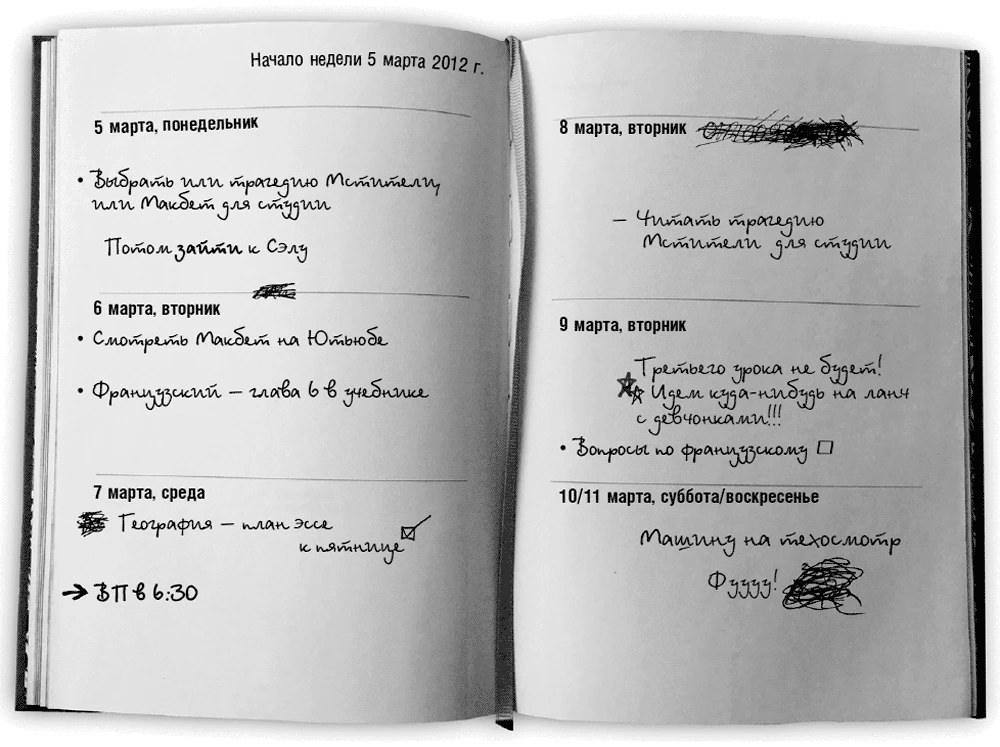 Начало недели 5 марта 2012 г.
5 марта, понедельник
• Выбрать или трагедию Мстители,
или Макбет для студии
Потом зайти к Сэлу
6 марта, вторник
• Смотреть Макбет на Ютьюбе
• Французский – глава 6 в учебнике
7 марта, среда
География – план эссе
к пятнице
→ ВП в 6:30
8 марта, вторник
– Читать трагедию
Мстители для студии
9 марта, вторник
Третьего урока не будет!
Идем куда-нибудь на ланч
с девчонками!!!
• Вопросы по французскому
10/11 марта, суббота/воскресенье
Машину на техосмотр
Фуууу!